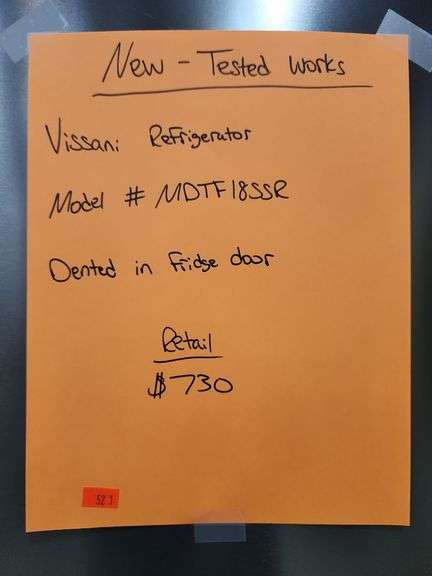 New - Tested works
Vissani Refrigerator
Model # MDTF18SSR
Dented in fridge door
Retail
$730